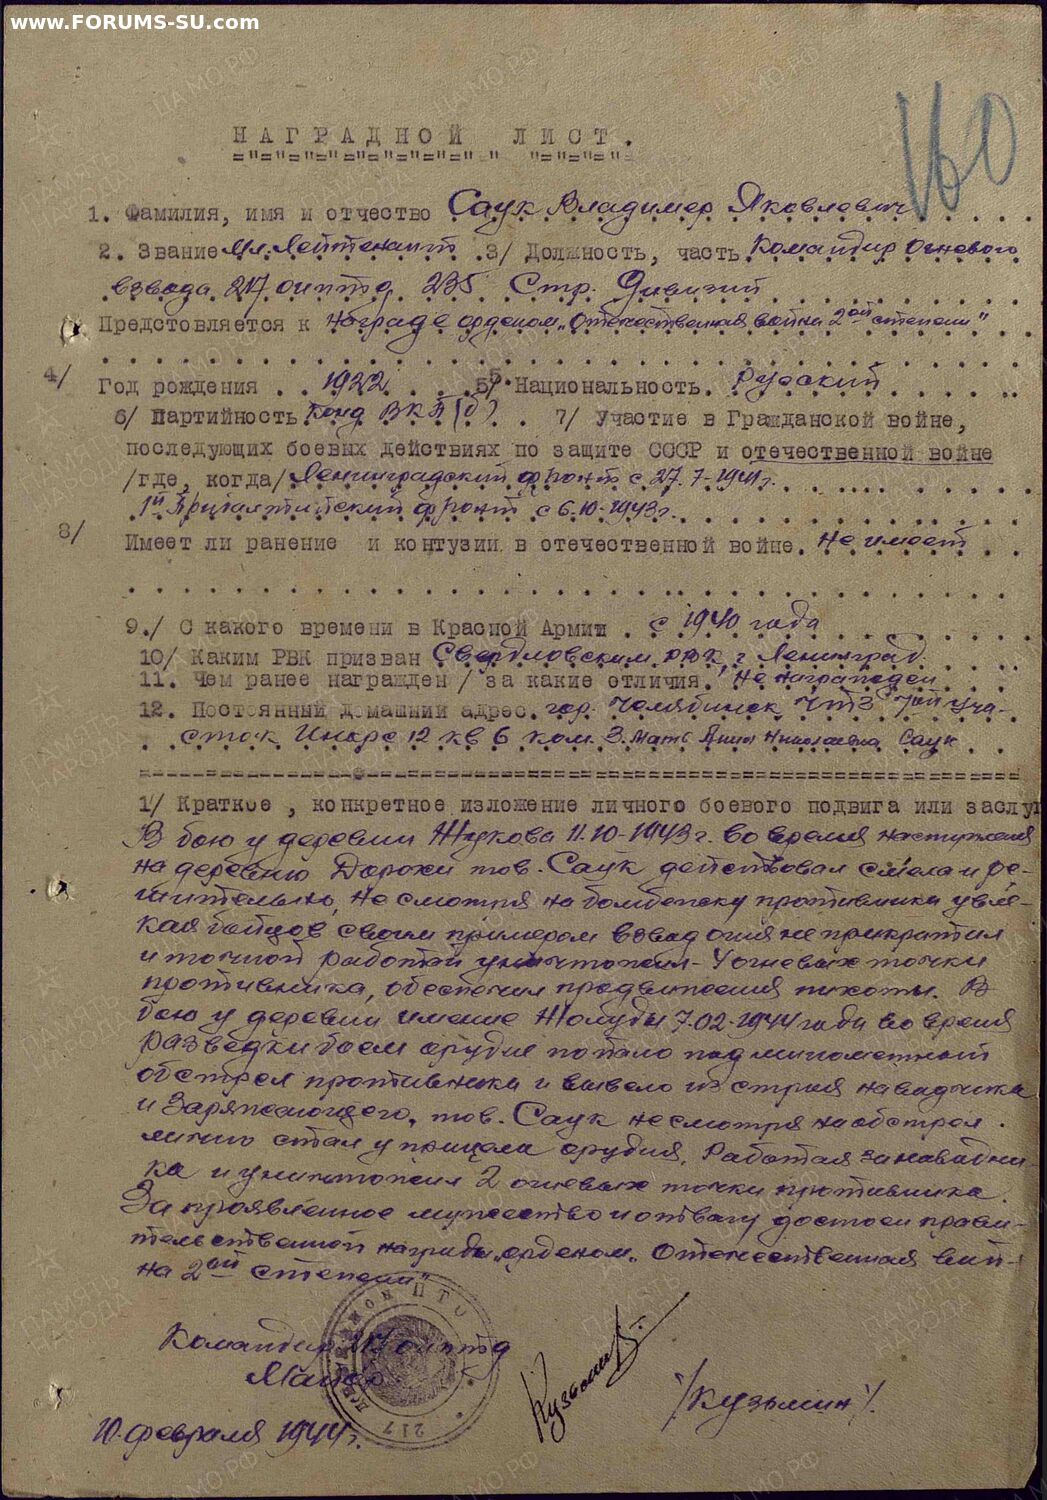 www.FORUMS-SU.com
160
НАГРАДНОЙ ЛИСТ.
1. Фамилия, имя и отчество Саук Владимер Яковлевич
2. Звание Мл. Лейтенант 3/ Должность, часть Командир огневого
взвода 217 оиптд 235 Стр. Дивизий
Предстовляется к награде орденом „Отечественная война 2ой степени"
4/ Год рождения 1922 5/ Национальность. Русский
6/ Партийность Конд ВКП(б) 7/ Участие в Гражданской войне,
последующих боевых действиях по защите СССР и отечественной войне
/где, когда/ Ленинградский фронт с 27.7-1941г.
1й Прибалтийский фронт с 6.10-1943г.
8/ Имеет ли ранение и контузии в отечественной войне. Не имеет
9./ С какого времени в Красной Армии с 1940 года
10/ Каким РВК призван Свердловским РВК, г Ленинград
11. Чем ранее награжден / за какие отличия. Не награжден
12. Постоянный домашний адрес. гор. Челябинск ЧТЗ 7ой уча-
сток 12 кв 6 ком. 3. Мать Николаевна Саук
1/ Краткое, конкретное изложение личного боевого подвига или заслу
В бою у деревни Жукова 11.10-1943г. во время наступления
на деревню Дорохи тов. Саук действовал смело и ре-
шительно, не смотря на бомбежку противника увле-
кая бойцов своим примером взвод огня не прекратил
и точной работой уничтожил 4 огневых точки
противника, обеспечил продвижения пихоты. В
бою у деревни имение Жолуды 7.02-1944 года во время
разведки боем орудие попало под минометный
обстрел противника и вывело из строя наводчика
и заряжающего, тов. Саук не смотря на обстрел
лично стал у прицела орудия, работая за наводчи-
ка и уничтожил 2 огневых точки противника.
За проявленное мужество и отвагу достоен прави-
тельственной награды „орденом „Отечественная вой-
на 2ой степени"
Командир 217 оиптд
Майор
Кузьмин
/Кузьмин/.
10. февраля 1944г.
ДИВИЗИОН ПТО
217